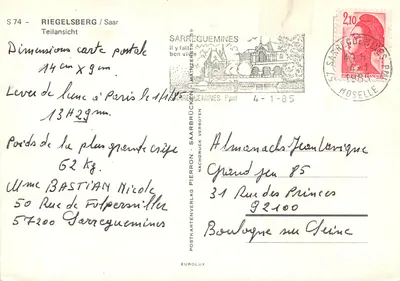 S 74 – RIEGELSBERG / Saar
Teilansicht
Dimensions carte postale
14 cm x 9 cm.
Lever de lune à Paris le 1/1/85
13H29mn.
Poids de la plus grante crêpe
62 Kg.
Mme BASTIAN Nicole
50 Rue de Folpersviller
57200 Sarreguemines
SARREGUEMINES
il y fait
bon viv
SARREGUEMINES Ppal
4-1-85
2,10
57 SARREGUEMINES PPAL
1985
MOSELLE
POSTKARTENVERLAG PIERRON · SAARBRÜCKEN
NACHDRUCK VERBOTEN
Almanachs Jean Lavigne
Grand jeu 85
31 Rue des Princes
92100
Boulogne sur Seine
EUROLUX